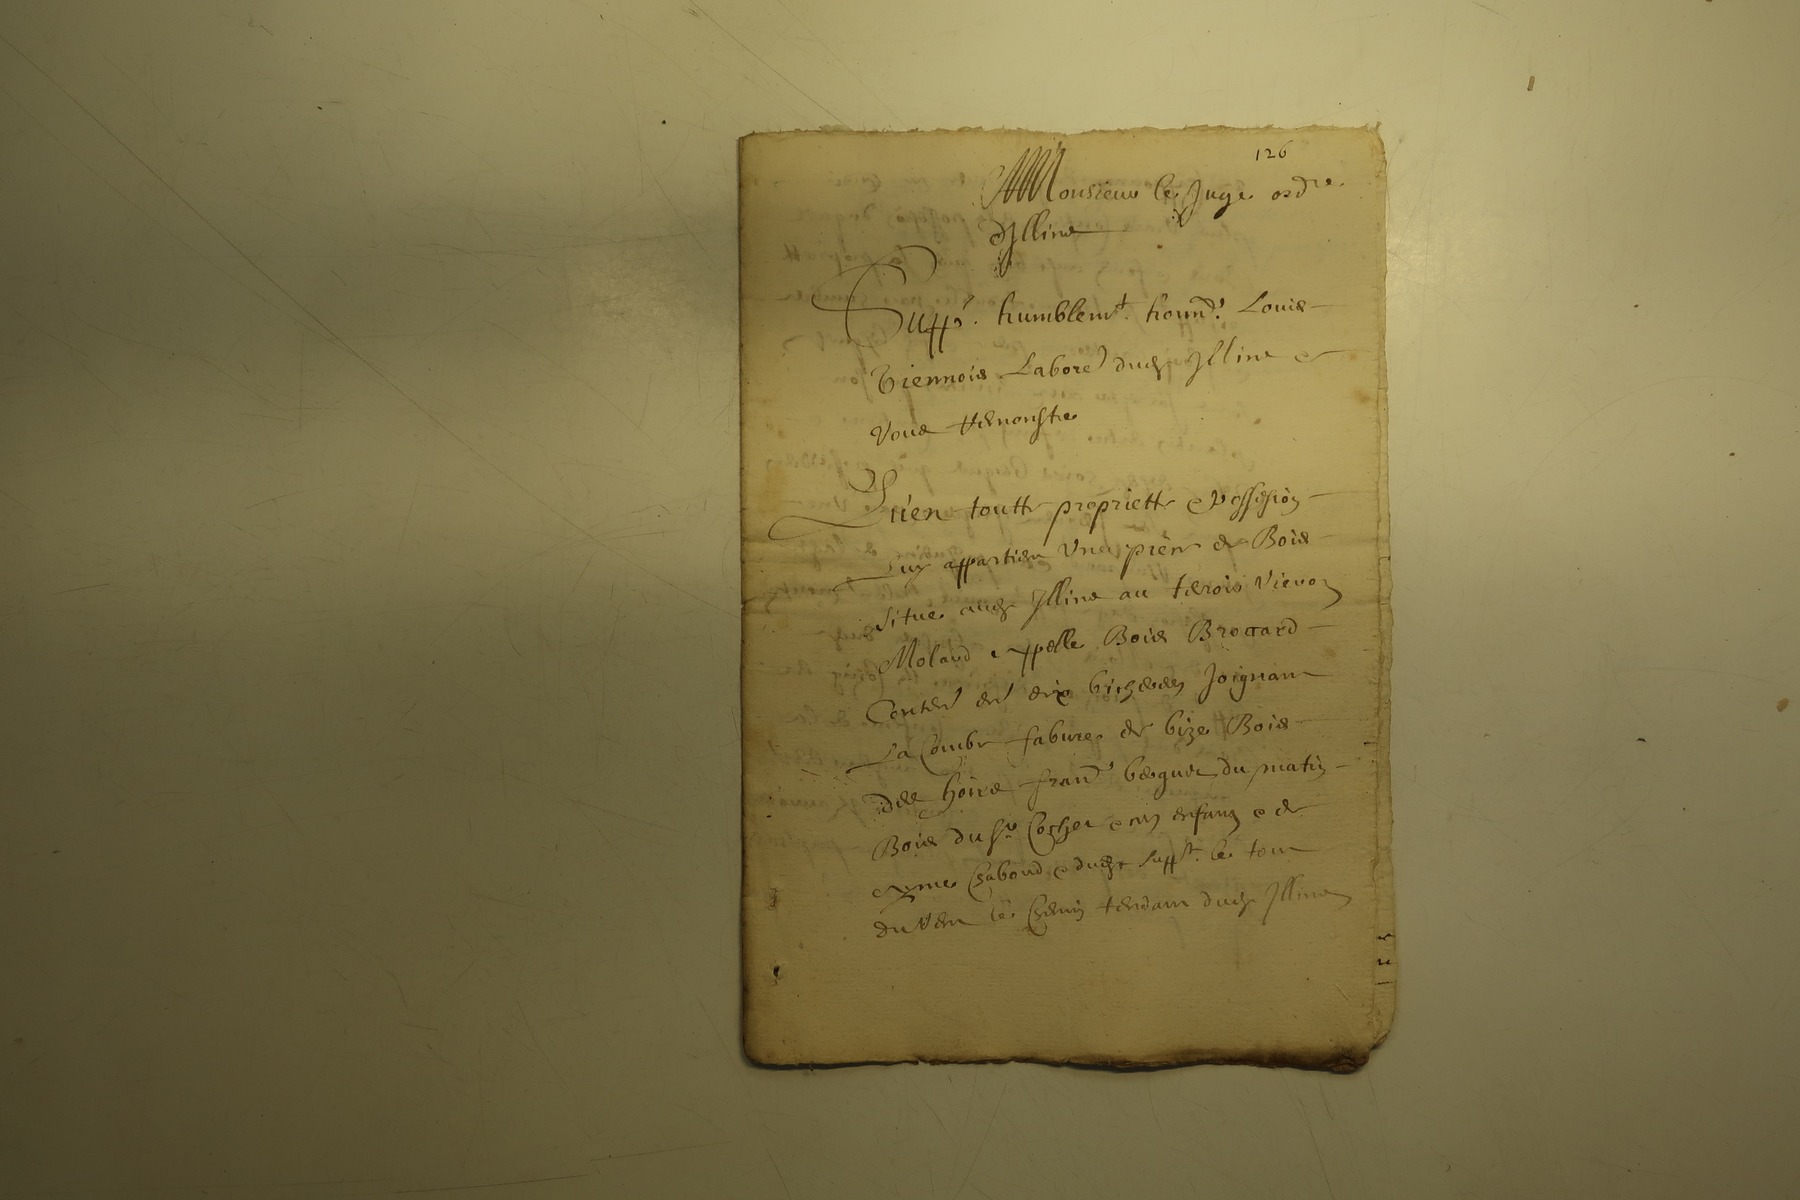 126
Monsieur le Juge ordre
d'Illins
Suppe. humblemt. honne. Louis
Viennois Labore dudt Illins et
Vous Remonstre
Qu'en toutte propriette e possession
Luy appartien Une piece de Bois
situe audt Illins au terois Vieux
Molard appelle Bois Brocard
Conten en dix bicherees Joignant
La Combe fabure de bize Bois
des hoirs bize du matin
Bois du sr Cochet e ses enfans e de
Chaboud e dudt suppt. le tout
du Vent le Chemin tendant dudt Illins